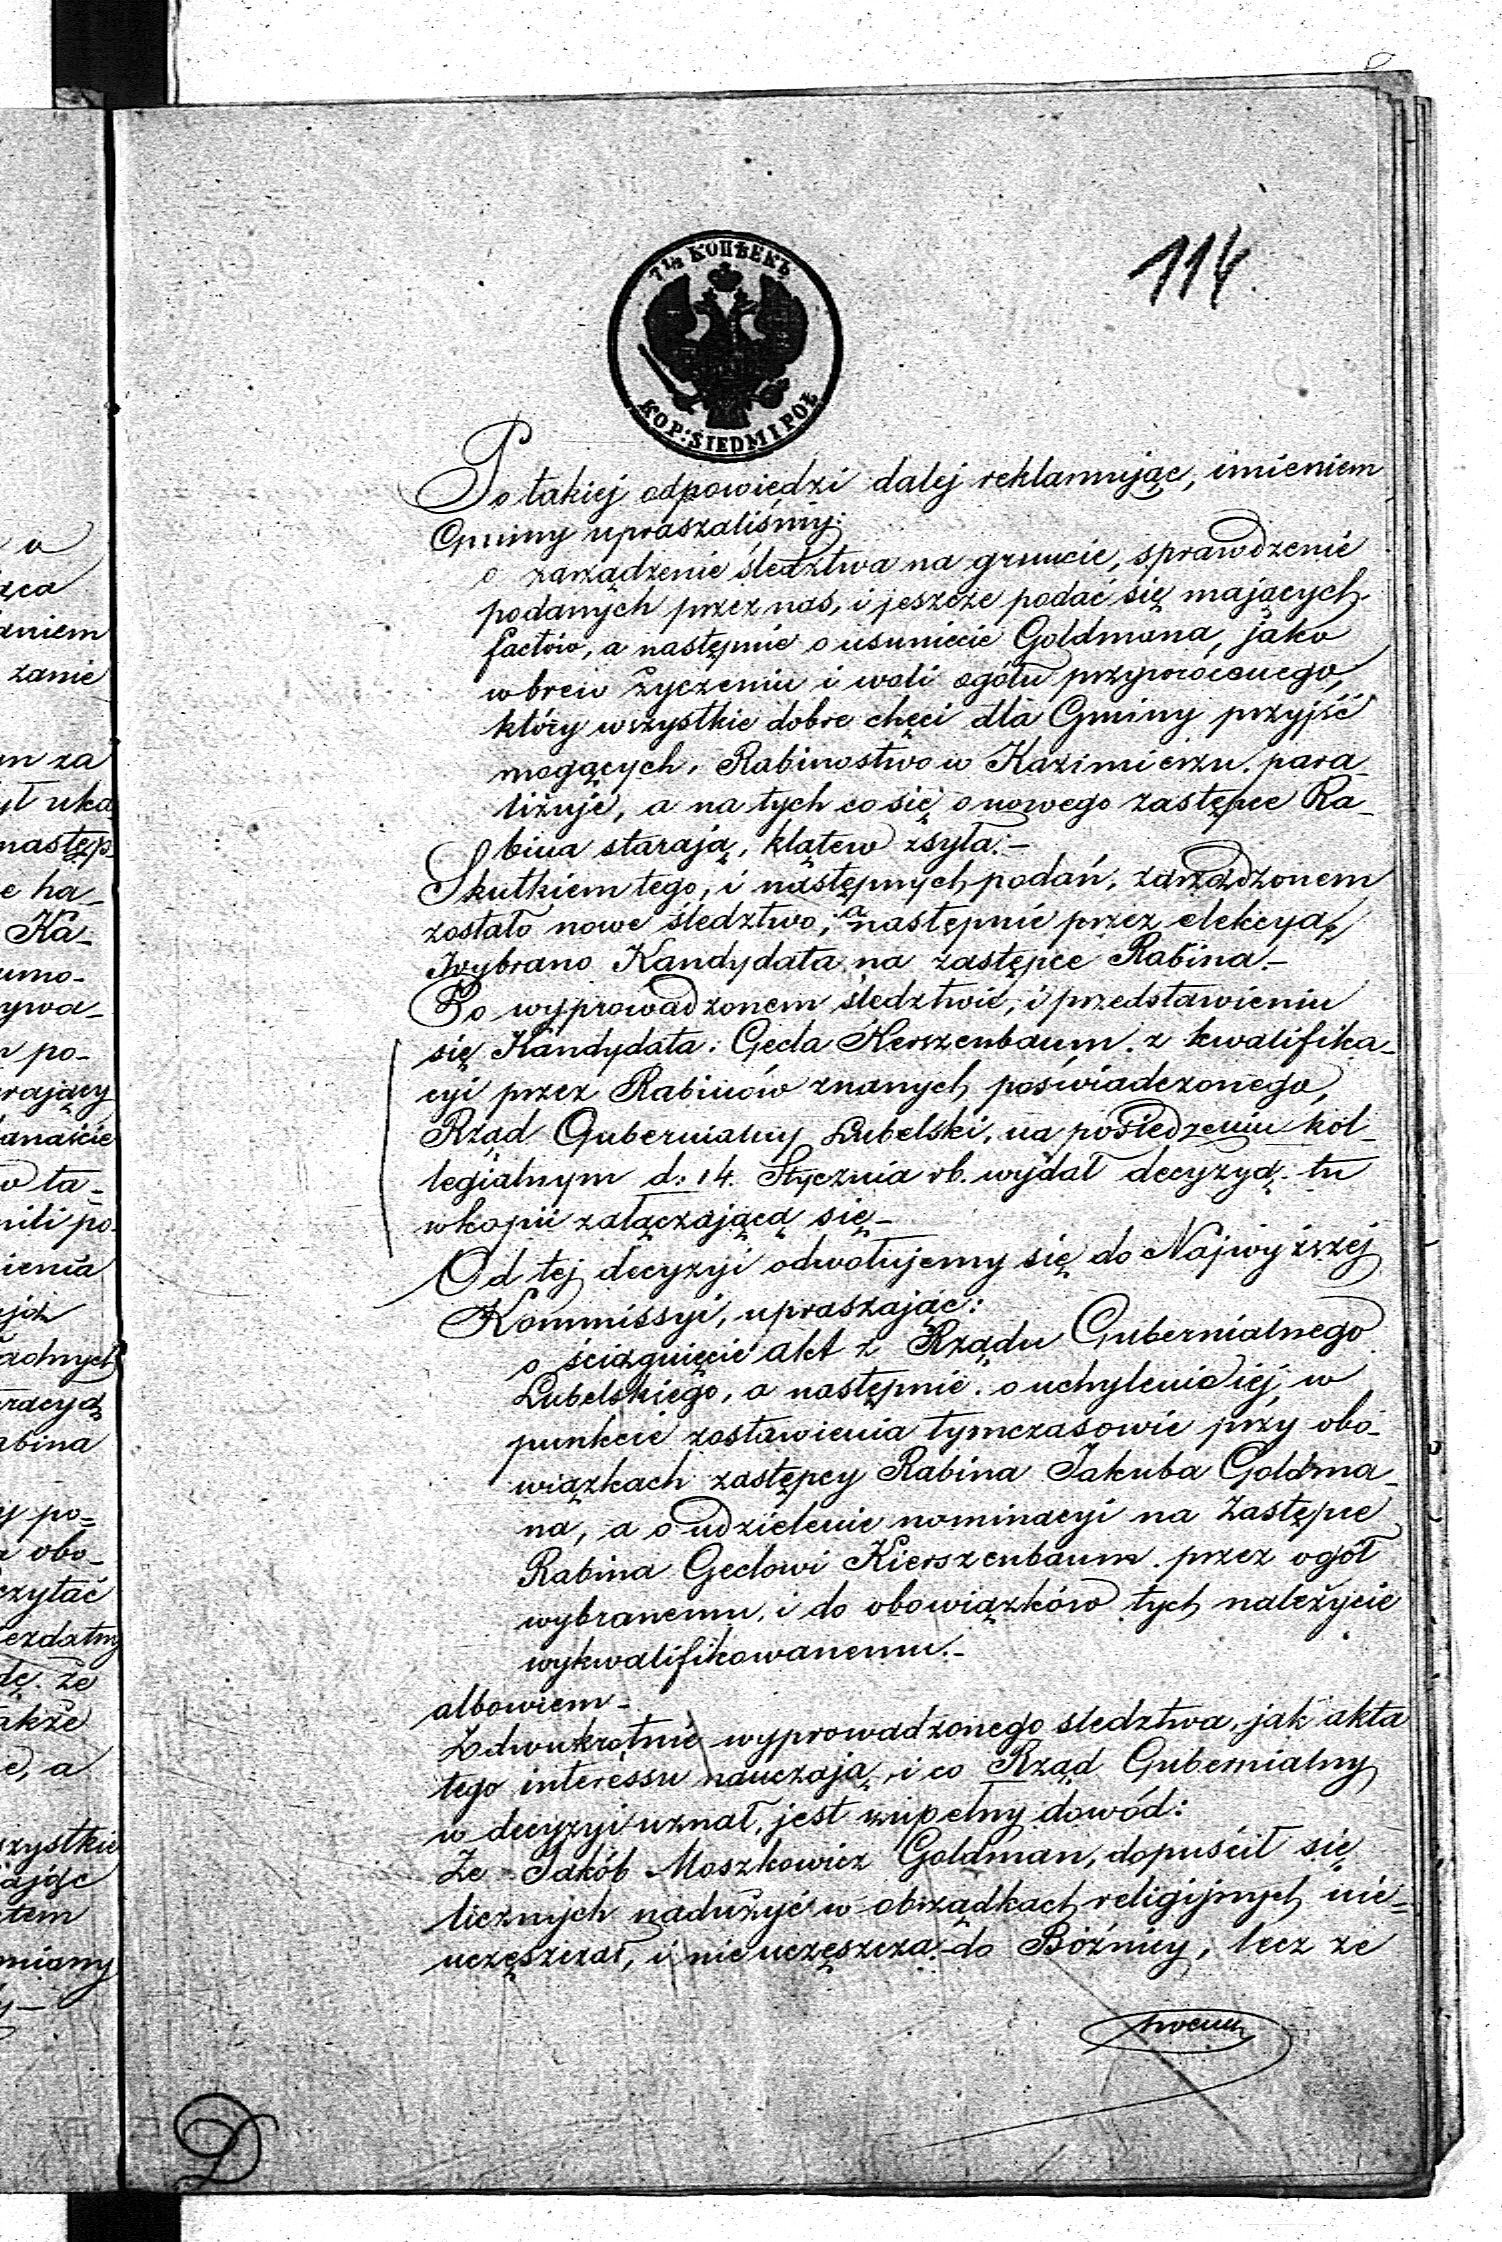 114.
7½ КОПѢЕКЪ
KOP: SIEDM I PÓŁ
Po takiej odpowiedzi dalej reklamując, imieniem
Gminy upraszaliśmy:
o zarządzenie śledztwa na gruncie, sprawdzenie
podanych przez nas, i jeszcze podać się mających
factów, a następnie o usuniecie Goldmana, jako
wbrew życzeniu i woli ogółu przywróconego,
który wszystkie dobre chęci dla Gminy przyjść
mogących, Rabinostwo w Kazimierzu. para_
liżuje, a na tych co się o nowego zastępce Ra_
bina starają, klątew zsyła.–
Skutkiem tego, i następnych podań, zarządzonem
zostało nowe śledztwo, a następnie przez elekcyą
wybrano Kandydata na zastępce Rabina.–
Po wyprowadzonem śledztwie, i przedstawieniu
się Kandydata: Gecla Herszenbaum. z kwalifika_
cyi przez Rabinów znanych poświadczonego,
Rząd Gubernialny Lubelski, na posiedzeniu kol_
legialnym d: 14. Stycznia rb. wydał decyzyą. tu
w kopii załączającą się–
Od tej decyzyi odwołujemy się do Najwyższej
Kommissyi, upraszając:
o ściągnięcie akt z Rządu Gubernialnego
Lubelskiego, a następnie. o uchylenie iéj w
punkcie zostawienia tymczasowie przy obo_
wiązkach zastępcy Rabina Jakuba Goldma_
na, a o udzielenie nominacyi na Zastępce
Rabina Geclowi Kierszenbaum. przez ogół
wybranemu, i do obowiązków tych należycie
wykwalifikowanemu.–
albowiem–
Z dwukrotnie wyprowadzonego sledztwa, jak akta
tego interessu nauczają, i co Rząd Gubernialny
w decyzyi uznał, jest zupełny dowód:
Ze Jakób Moszkowicz Goldman, dopuścił się
licznych nadużyć w obrządkach religijnych nie=
uczęszczał, i nie uczęszcza do Bóżnicy, lecz ze